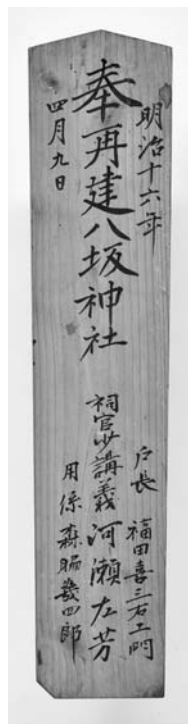 明治十六年
奉再建八坂神社
四月九日
戸長 福田喜三右エ門
祠官少講義 河瀬左芳
用係 森脇幾四郎